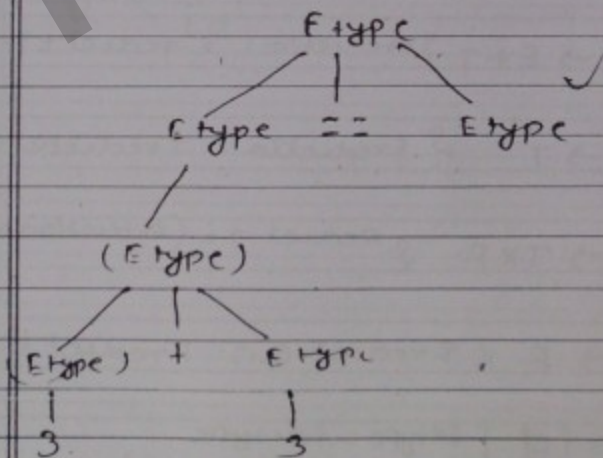 E type
E type == E type
(E type)
(E type) + E type
3 3